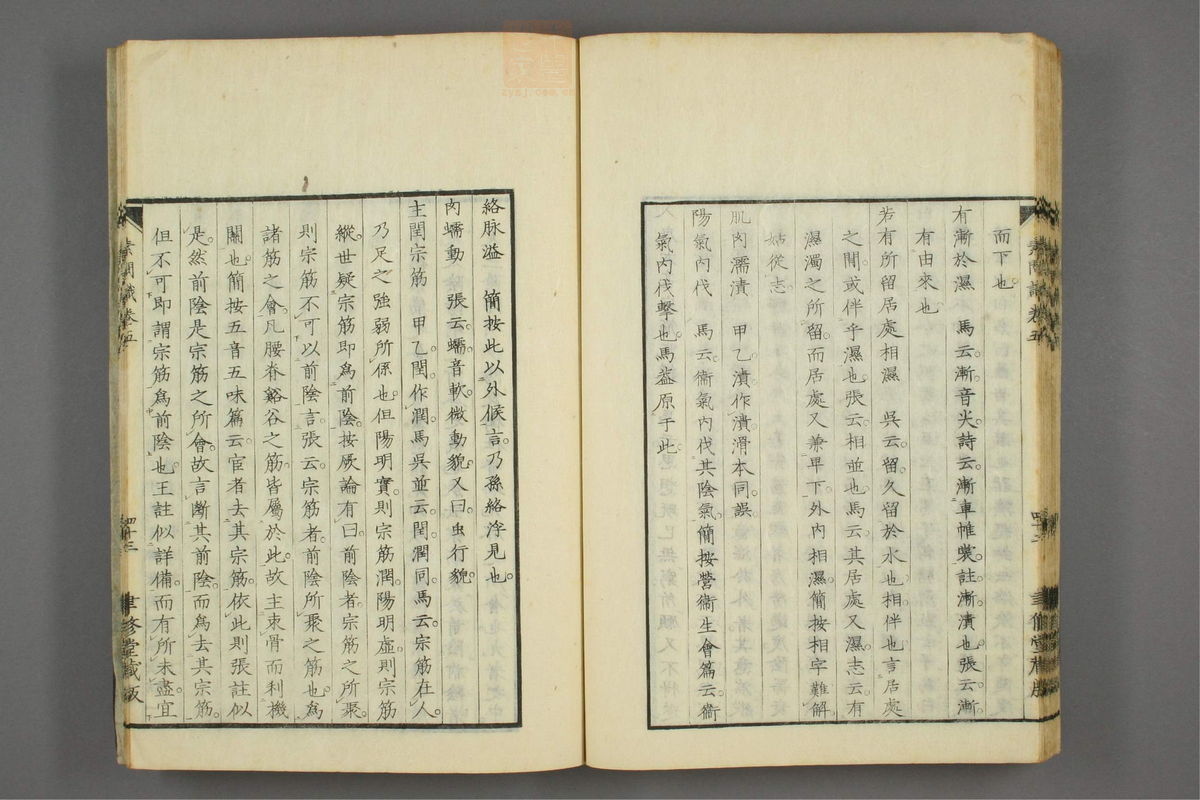 而下也。
有漸於濕　馬云。漸。音尖。詩云。漸車帷裳。註。漸。漬也。張云。漸。
有由來也
若有所留居處相濕　吳云。留。久留於水也。相。伴也。言居處
之間。或伴乎濕也。張云。相。並也。馬云。其居處又濕。志云。有
濕濁之所留。而居處又兼卑下。外內相濕。簡按相字難解。
姑從志。
肌肉濡漬　甲乙。漬。作潰。滑本同。誤。
陽氣內伐　馬云。衞氣內伐其陰氣。簡按營衞生會篇云。衞
氣內伐。擊也。馬蓋原于此。
絡脉溢　簡按此以外候言。乃孫絡浮見也。
肉蠕動　張云。蠕。音軟。微動貌。又曰。虫行貌。
主閏宗筋　甲乙。閏。作潤。馬吳並云。閏。潤同。馬云。宗筋在人。
乃足之強弱所係也。但陽明實。則宗筋潤。陽明虛。則宗筋
縱。世疑宗筋即爲前陰。按厥論有曰。前陰者。宗筋之所聚。
則宗筋不可以前陰言。張云。宗筋者。前陰所聚之筋也。爲
諸筋之會。凡腰脊谿谷之筋。皆屬於此。故主束骨而利機
關也。簡按五音五味篇云。宦者去其宗筋。依此則張註似
是。然前陰是宗筋之所會。故言斷其前陰。而爲去其宗筋。
但不可即謂宗筋爲前陰也。王註似詳備。而有所未盡。宜
素問識卷五
四十三
聿修堂藏版